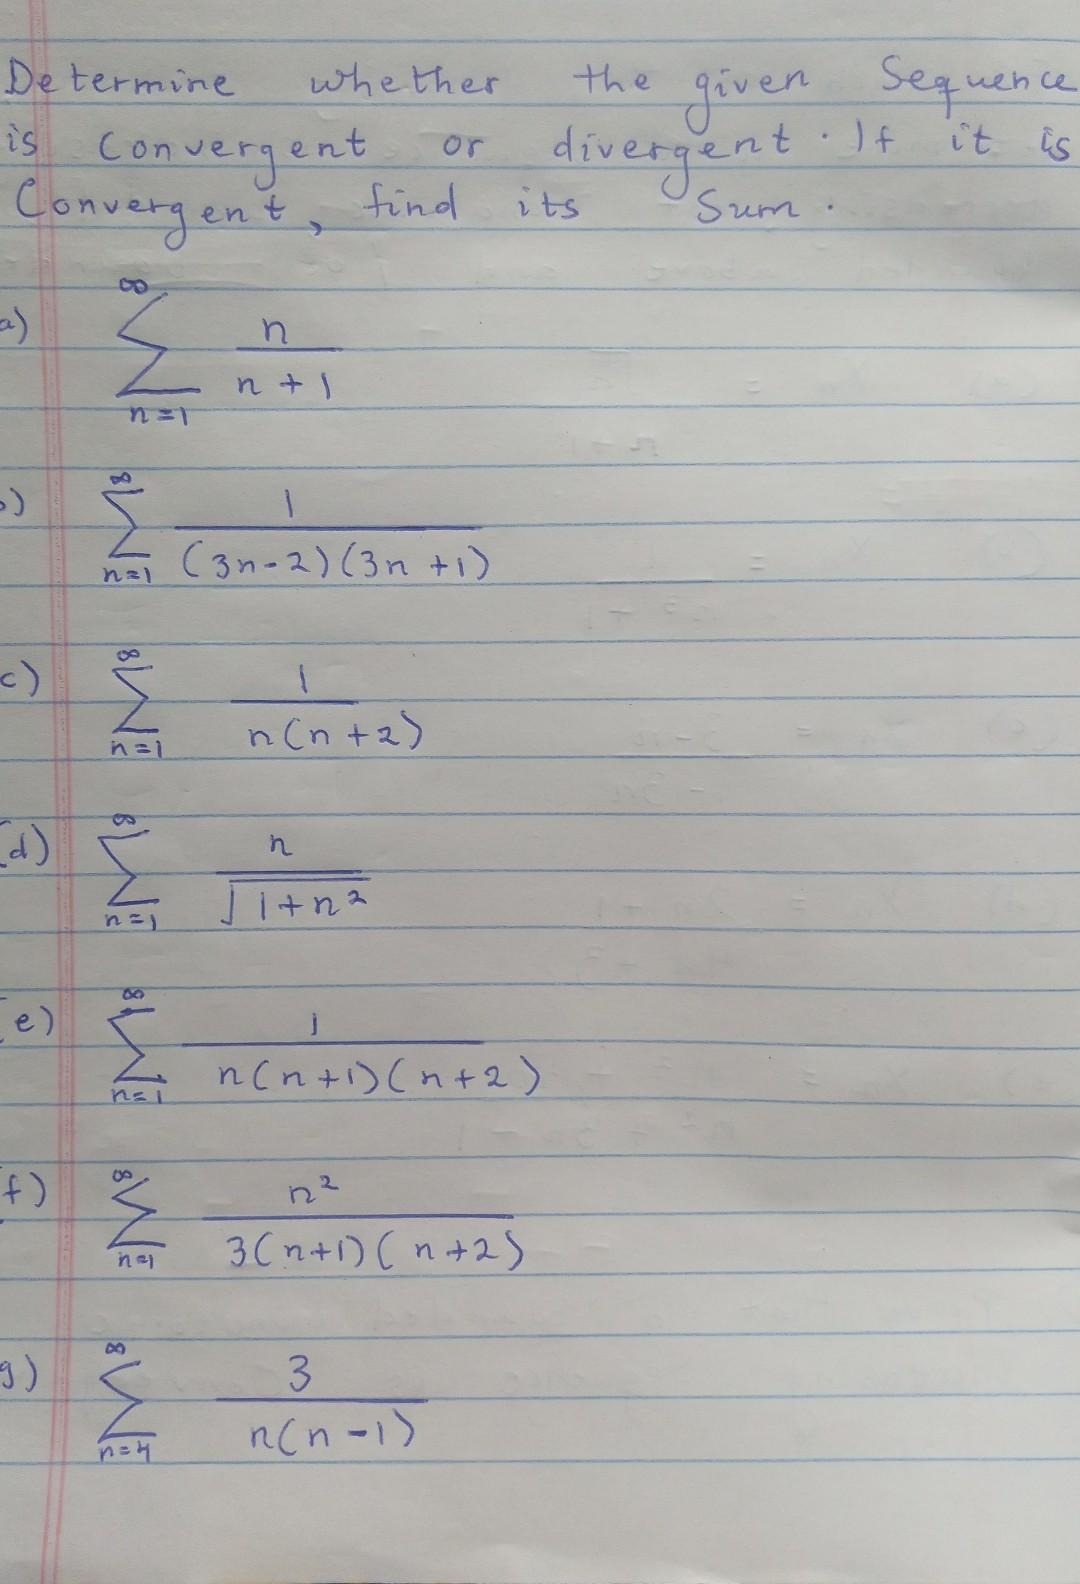 Determine whether the given Sequence
is Convergent or divergent. If it is
Convergent, find its Sum.
a) ∞ ∑ n=1 n / n + 1
b) ∞ ∑ n=1 1 / (3n-2)(3n+1)
c) ∞ ∑ n=1 1 / n(n+2)
(d) ∞ ∑ n=1 n / √1+n²
(e) ∞ ∑ n=1 1 / n(n+1)(n+2)
(f) ∞ ∑ n=1 n² / 3(n+1)(n+2)
g) ∞ ∑ n=4 3 / n(n-1)